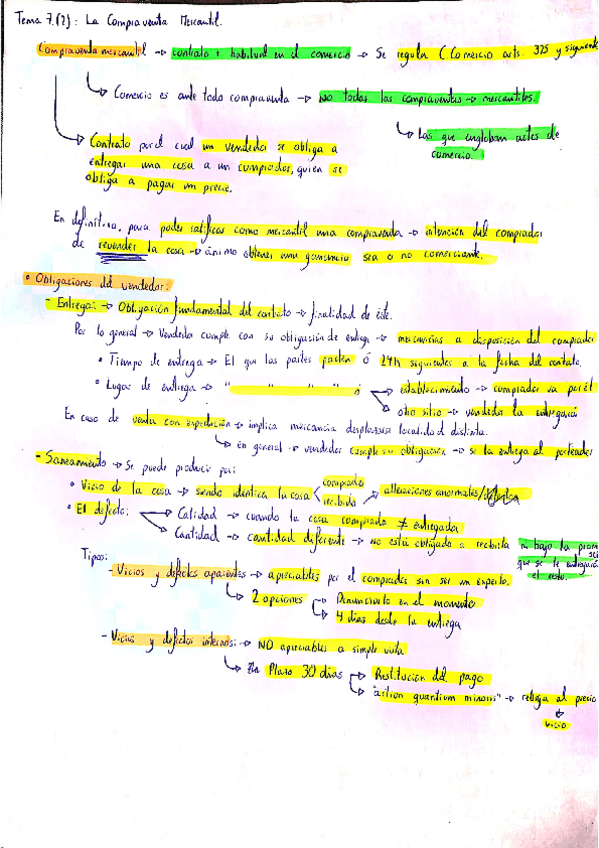 Tema 7.(2): La Compraventa Mercantil.
Compraventa mercantil → contrato + habitual en el comercio → Se regula (Comercio arts. 325 y siguiente
Comercio es ante todo compraventa → No todas las compraventas → mercantiles.
Las que engloban actos de
comercio.
Contrato por el cual un vendedor se obliga a
entregar una cosa a un comprador, quien se
obliga a pagar un precio.
En definitiva, para poder calificar como mercantil una compraventa → intención del comprador
de revender la cosa → ánimo obtener una ganancia sea o no comerciante.
• Obligaciones del vendedor:
- Entrega: → Obligación fundamental del contrato → finalidad de éste.
Por lo general → Vendedor cumple con su obligación de entrega → mercancías a disposición del comprador
• Tiempo de entrega → El que las partes pacten ó 24h siguientes a la fecha del contrato.
• Lugar de entrega → " " " " ó → establecimiento → comprador va por él
otro sitio → vendedor la entregará
En caso de venta con expedición → implica mercancía desplazarse localidad distinta.
en general → vendedor cumple su obligación → se la entrega al porteador
- Saneamiento → Se puede producir por:
• Vicio de la cosa → siendo idéntica la cosa < comprada recibida > alteraciones anormales/defectos
• El defecto: → Calidad → cuando la cosa comprada ≠ entregada
Cantidad → cantidad diferente → no está obligado a recibirla ni bajo la prom
que se le entregará
el resto.
Tipos:
- Vicios y defectos aparentes → apreciables por el comprador sin ser un experto.
2 opciones → Denunciarlo en el momento
4 días desde la entrega
- Vicios y defectos internos: → NO apreciables a simple vista
En Plazo 30 días → Restitución del pago
"action quantium minoris" → rebaja al precio
vicio